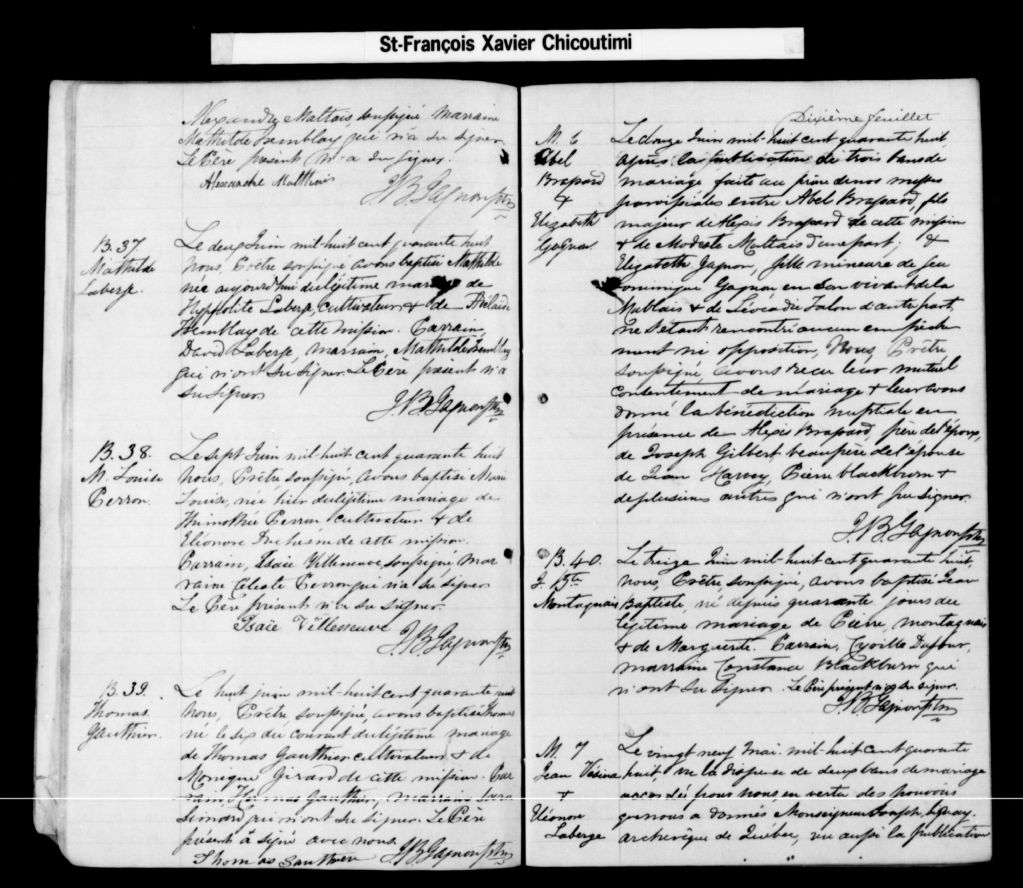 St-François Xavier Chicoutimi
Alexandre Maltais soussigné Marraine
Mathilde Tremblay qui n'a su signer
Le Père present n'a su signer.
Alexandre Malthais
J.B. Gagnon Ptre
B. 37
Mathilde
Laberge.
Le deux Juin mil-huit cent quarante huit
nous, Prêtre soussigné avons baptisé Mathilde
née aujourd'hui du légitime mariage de
Hyppolite Laberge, cultivateur & de Adelaide
Tremblay de cette mission. Parrain,
David Laberge, Marraine, Mathilde Tremblay
qui n'ont su signer. Le Père present n'a
su signer
J.B. Gagnon Ptre
B. 38.
M. Louise
Perron.
Le sept Juin mil-huit cent quarante huit
nous, Prêtre soussigné, avons baptisé Marie
Louise, née hier du légitime mariage de
Thimothée Perron cultivateur & de
Eléonore Duchésne de cette mission.
Parrain, Isaïe Villeneuve soussigné mar
raine Celeste Perron qui n'a su signer
Le Père présent n'a su signer.
Isaïe Villeneuve
J.B. Gagnon Ptre
B. 39.
Thomas
Gauthier.
Le huit juin mil-huit cent quarante huit
nous, Prêtre soussigné avons baptisé Thomas
né le six du courant du légitime mariage
de Thomas Gauthier cultivateur & de
Monique Girard de cette mission. Par
rain, Thomas Gauthier, marraine
Simard qui n'ont su signer Le Père
présent à signé avec nous
Thomas Gauthier J.B. Gagnon Ptre
Dixième feuillet
M. 6
Abel
Brassard
&
Elizabeth
Gagnon.
Le douze Juin mil-huit cent quarante huit
après la publication de trois bans de
mariage faite au prône de nos messes
paroissiales entre Abel Brassard, fils
majeur de Alexis Brassard de cette mission
& de Modeste Maltais d'une part; &
Elizabeth Gagnon, fille mineure de feu
Dominique Gagnon en son vivant de la
Malbais & de Léocadie Talon d'autre part,
ne s'étant rencontré aucun empêche
ment ni opposition, Nous, Prêtre
soussigné avons recu leur mutuel
consentement de mariage & leur avons
donné la bénédiction nuptiale en
présence de Alexis Brassard, père de l'époux,
de Joseph Gilbert, beaupère de l'épouse
de Jean Harvey, Pierre blackburn &
de plusieurs autres qui n'ont su signer
J.B. Gagnon Ptre
B. 40.
J. Bte
Montagnais
Le treize Juin mil-huit cent quarante huit,
nous, Prêtre soussigné, avons baptisé Jean
Baptiste, né depuis quarante jours du
légitime mariage de Pierre, montagnais
& de Marguerite. Parrain, Cyrille Dufour,
marraine Constance Blackburn qui
n'ont su signer. Le Père présent n'a su signer.
J.B. Gagnon Ptre
M. 7
Jean Vésina
&
Eléonore
Laberge
Le vingt neuf Mai mil-huit cent quarante
huit, vu la dispense de deux bans de mariage
accordée par nous en vertu des pouvoirs
que nous a donnés Monseigneur Joseph, Signay
archevêque de Quebec, vu aussi la publication